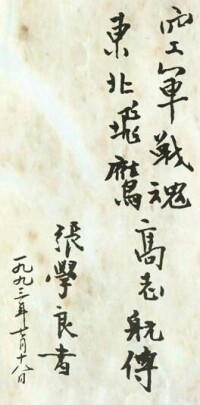 空軍戰魂高志航傳
東北飛鷹
張學良書
一九九三年 月十八日